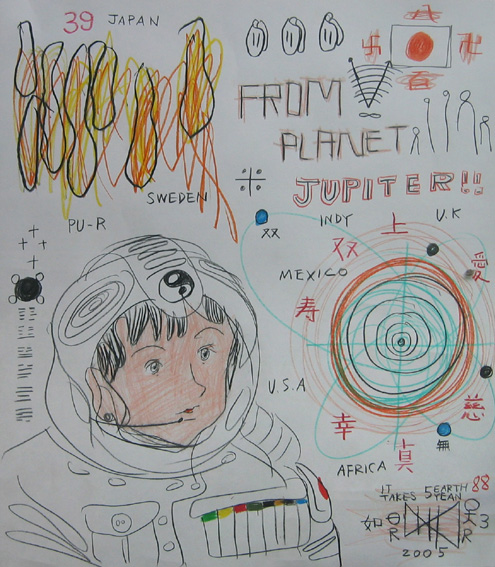 39 JAPAN
八
卐 卍
百
FROM
PLANET
JUPITER!!
SWEDEN
PU-R
INDY
U.K
双
双
上
愛
MEXICO
寿
U.S.A
慈
幸
貞
無
AFRICA
IT TAKES 5 EARTH YEAR
88
如
2005